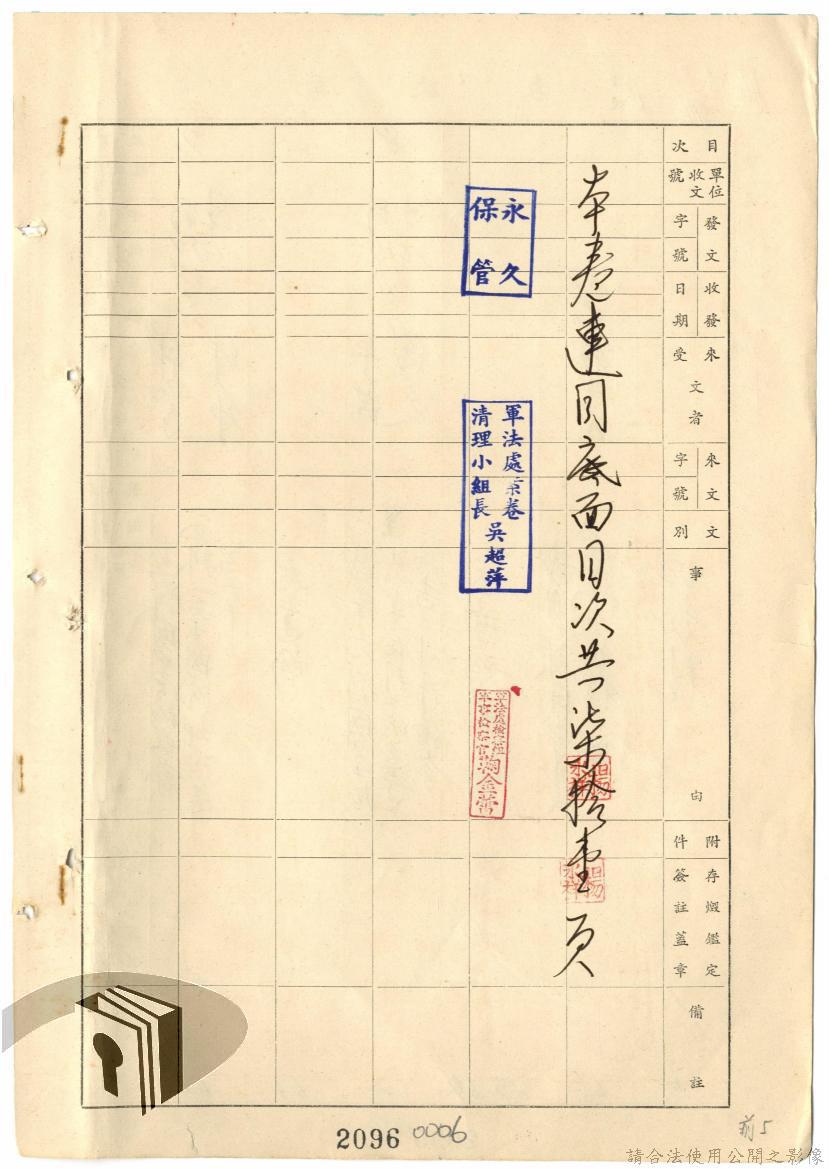 目次
單位收文號
發文字號
收發日期
來文者受
來文字號
文別
事由
附件
存燬鑑定簽註蓋章
備註
本卷連同底面目次共柒拾壹頁
永久
保管
軍法處案卷
清理小組長 吳超萍
軍法處檢察組
軍事檢察官
2096
0006
前5
請合法使用公開之影像